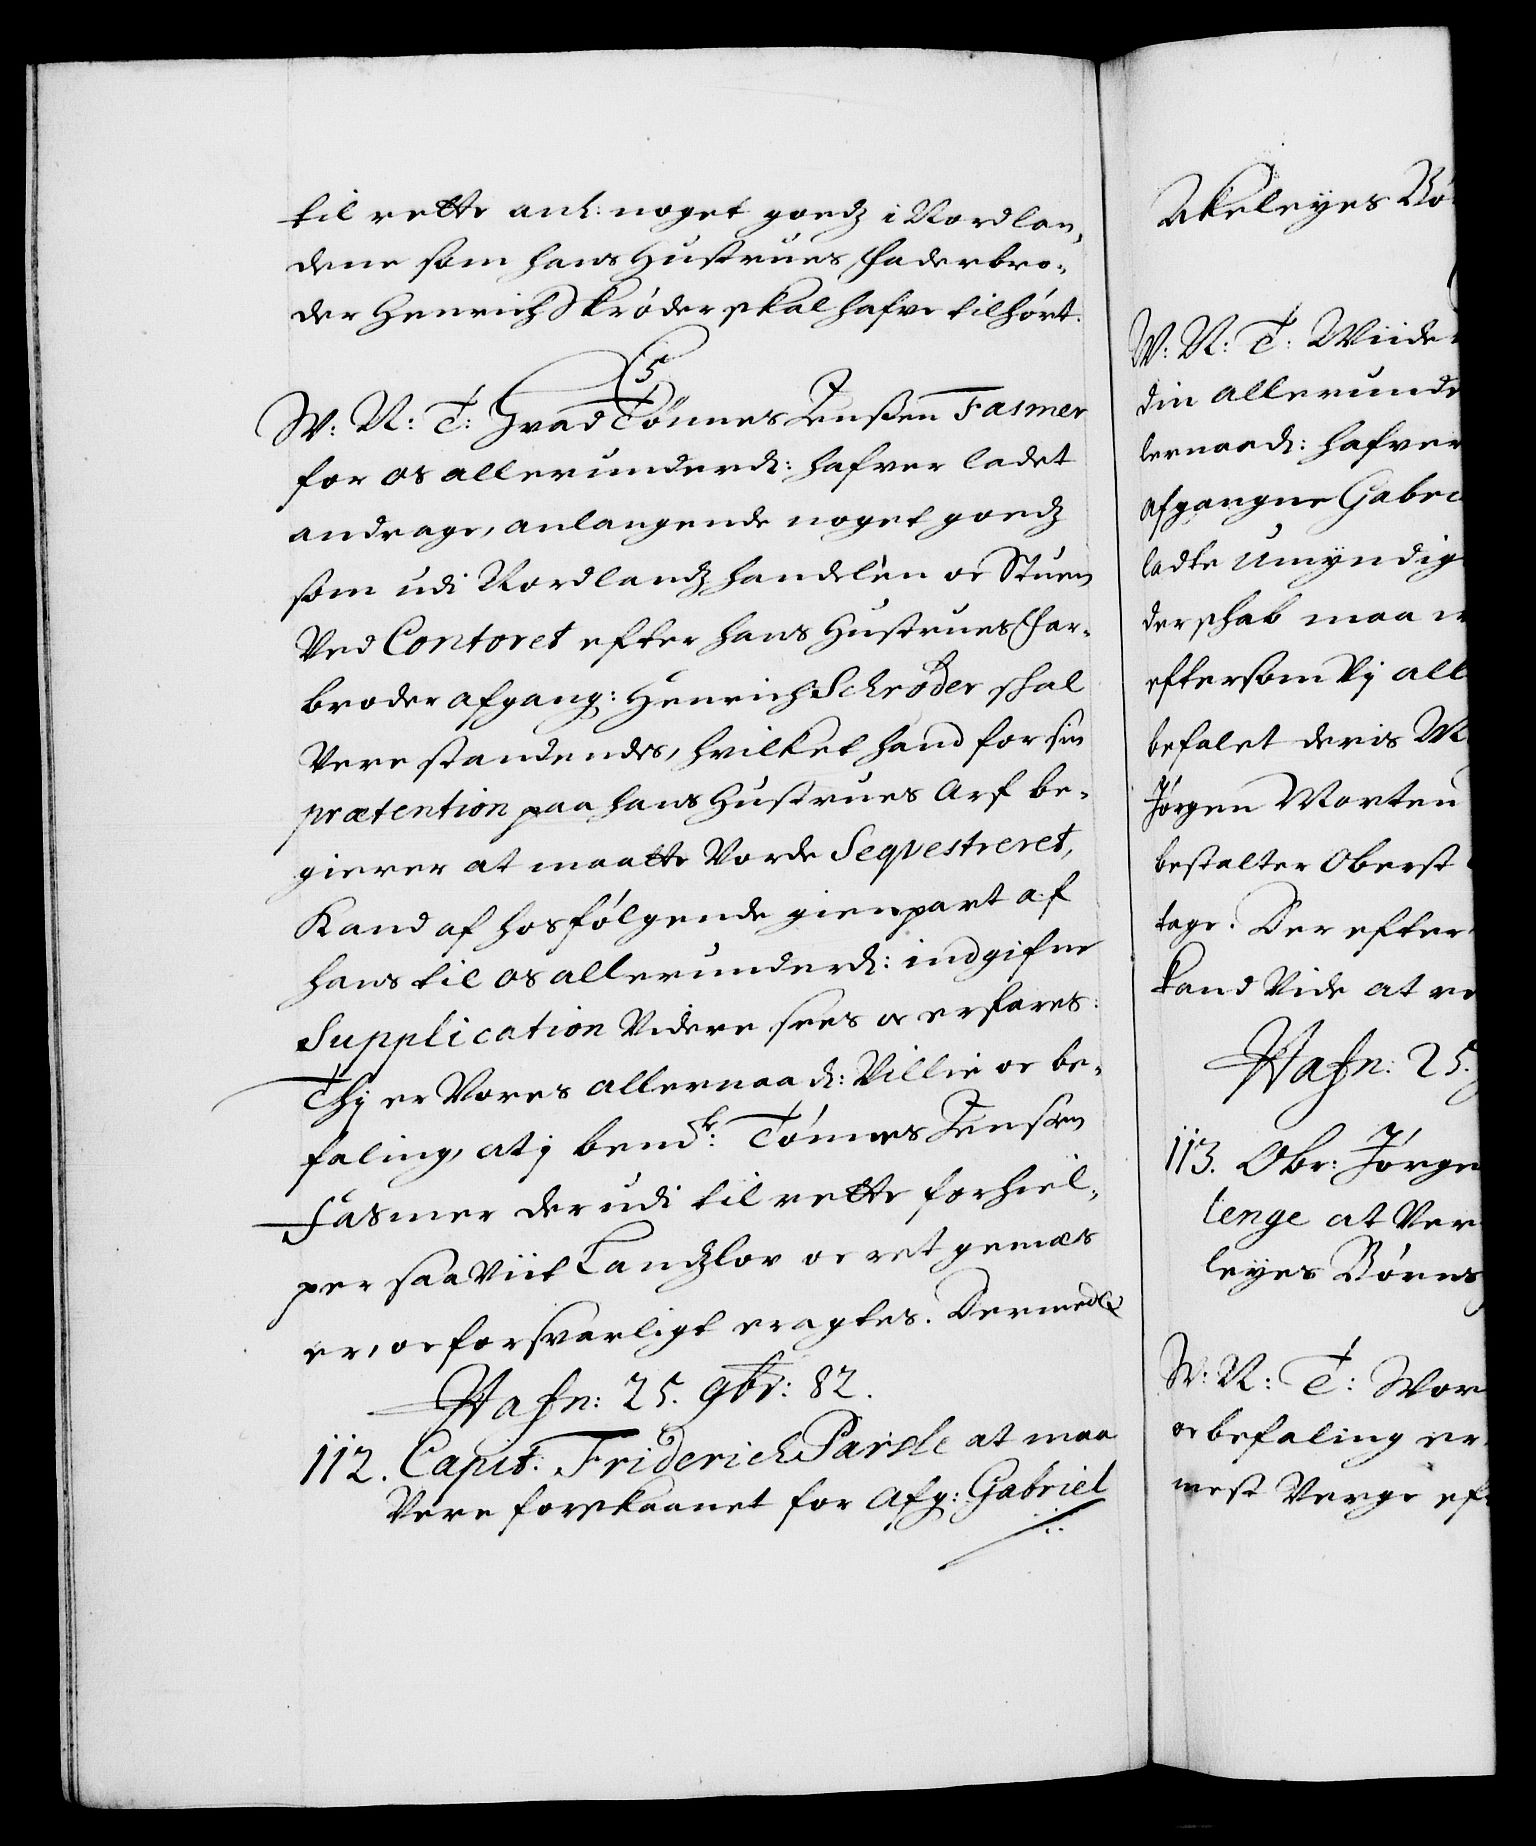 til rette anl: noget goedz i Nordlan,
dene som hans Hustrues Faderbro,
der Henrich Skrøder skal hafve tilhørt.
C5
W: N: T: Hvad Tønnes Jenßen Fasmer
for os allerunderd: hafver ladet
andrage, anlangende noget goedz
som udi Nordlandz handelen oc Stuen
Ved Contoret efter hans Hustrues Far,
broder afgang: Henrich Schrøder schal
Vere standendes, hvilket hand for sin
prætention paa hans Hustrues Arf be,
gierer at maatte Vorde Seqvestreret,
Kand af hosfølgende gienpart af
hans til os allerunderd: indgifne
Supplication Videre sees oc erfares:
Thj er Vores allernaad: Villie oc be,
faling, at j bemd:te Tønnes Jensen
Fasmer der udi til rette forhiel,
per saa Viit Landzlov oc ret gemæs
er, oc forsvarligt eragtes. Dermed
Hafn: 25. 9br: 82.
112. Capit: Friderich Parsle at maa
Vere forskaanet for Afg: Gabriel
Akeleyes Bø
W: N: T: Wiide
din allerunde
lernaad: hafver
afgangne Gabri
ladte Umyndig
derschab maa
eftersom Vj all
befalet deris
Jørgen Morten
bestalter Oberst
tage. Der efter
kand Vide at
Hafn: 25.
113. Obr: Jørge
lenge at Ver
leyes Børns
W: N: T: Wor
oc befaling er
mest Verge eft